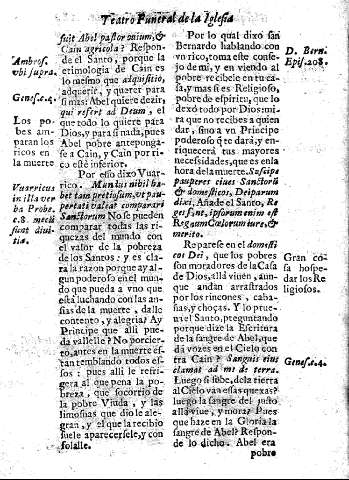 Teatro Funeral de la Iglesia
suit Abel pastor ovium, &
Cain agricola? Respon-
de el Santo, porque la
etimologia de Cain es
lo mesmo que adquisitio,
adquerir, y querer para
si mas: Abel quiere dezir,
qui refert ad Deum, el
que todo lo quiere para
Dios, y para si nada, pues
Abel pobre anteponga-
se a Cain, y Cain por ri-
co esté inferior.
Por esso dixo Vuar-
rico. Mundus nihil ha-
bet tam pretiosum, ut pau-
pertati valeat comparari
Sanctorum No se pueden
comparar todas las ri-
quezas del mundo con
el valor de la pobreza
de los Santos: y es cla-
ra la razon porque ay al-
gun poderoso en el mun-
do que pueda a vno que
está luchando con las an-
sias de la muerte, dalle
contento, y alegria? Ay
Principe que alli pue-
da valelle? No por cier-
to, antes en la muerte es-
tan temblando todos es-
sos: pues alli le refri-
gera al que pena la po-
breza, que socorrio de
la pobre Viuda, y las
limosnas que dio le ale-
gran, y el que la recibio
suele aparecersele, y con
solalle.
Ambros.
vbi supra.
Genes. c. 4.
Los po-
bes am-
paran los
ricos en
la muerte
Vuarricus
in illa ver
ba Probe.
c. 8. mecü
sunt divi-
tia.
Por lo qual dixo san
Bernardo hablando con
vn rico, toma este conse-
jo de mi, y en viendo al
pobre recibele en tu ca-
sa, y mas si es Religioso,
pobre de espiritu, que lo
dexò todo por Dios: mi-
ra que no recibes a quien
dar, sino a vn Principe
poderoso q̃ te darà, y en-
riquecerà tus mayores
necessidades, que es en la
hora de la muerte. Suscipe
pauperes cives Sanctorũ
& domesticos, Dei parum
dixi, Añade el Santo, Re
ges sunt, ipsorum enim est
Regnum Cœlorum iure, &
merito.
Reparese en el domesti
cos Dei, que los pobres
son moradores de la Casa
de Dios, allà viuen, aun-
que andan arrastrados
por los rincones, caba-
ñas, y choças. Y lo prue-
ua el Santo, preguntando
porque dize la Escritura
de la sangre de Abel, que
dà vozes en el Cielo con
tra Cain? Sanguis eius
clamat ad me de terra.
Luego si sube, de la tierra
al Cielo van essas quexas?
luego la sangre del justo
allà viue, y mora? Pues
que haze en la Gloria la
sangre de Abel? Respon-
de lo dicho. Abel era
pobre
D. Bern.
Epis. 208.
Gran co
sa hospe-
dar los Re
ligiosos.
Genes. c. 4.